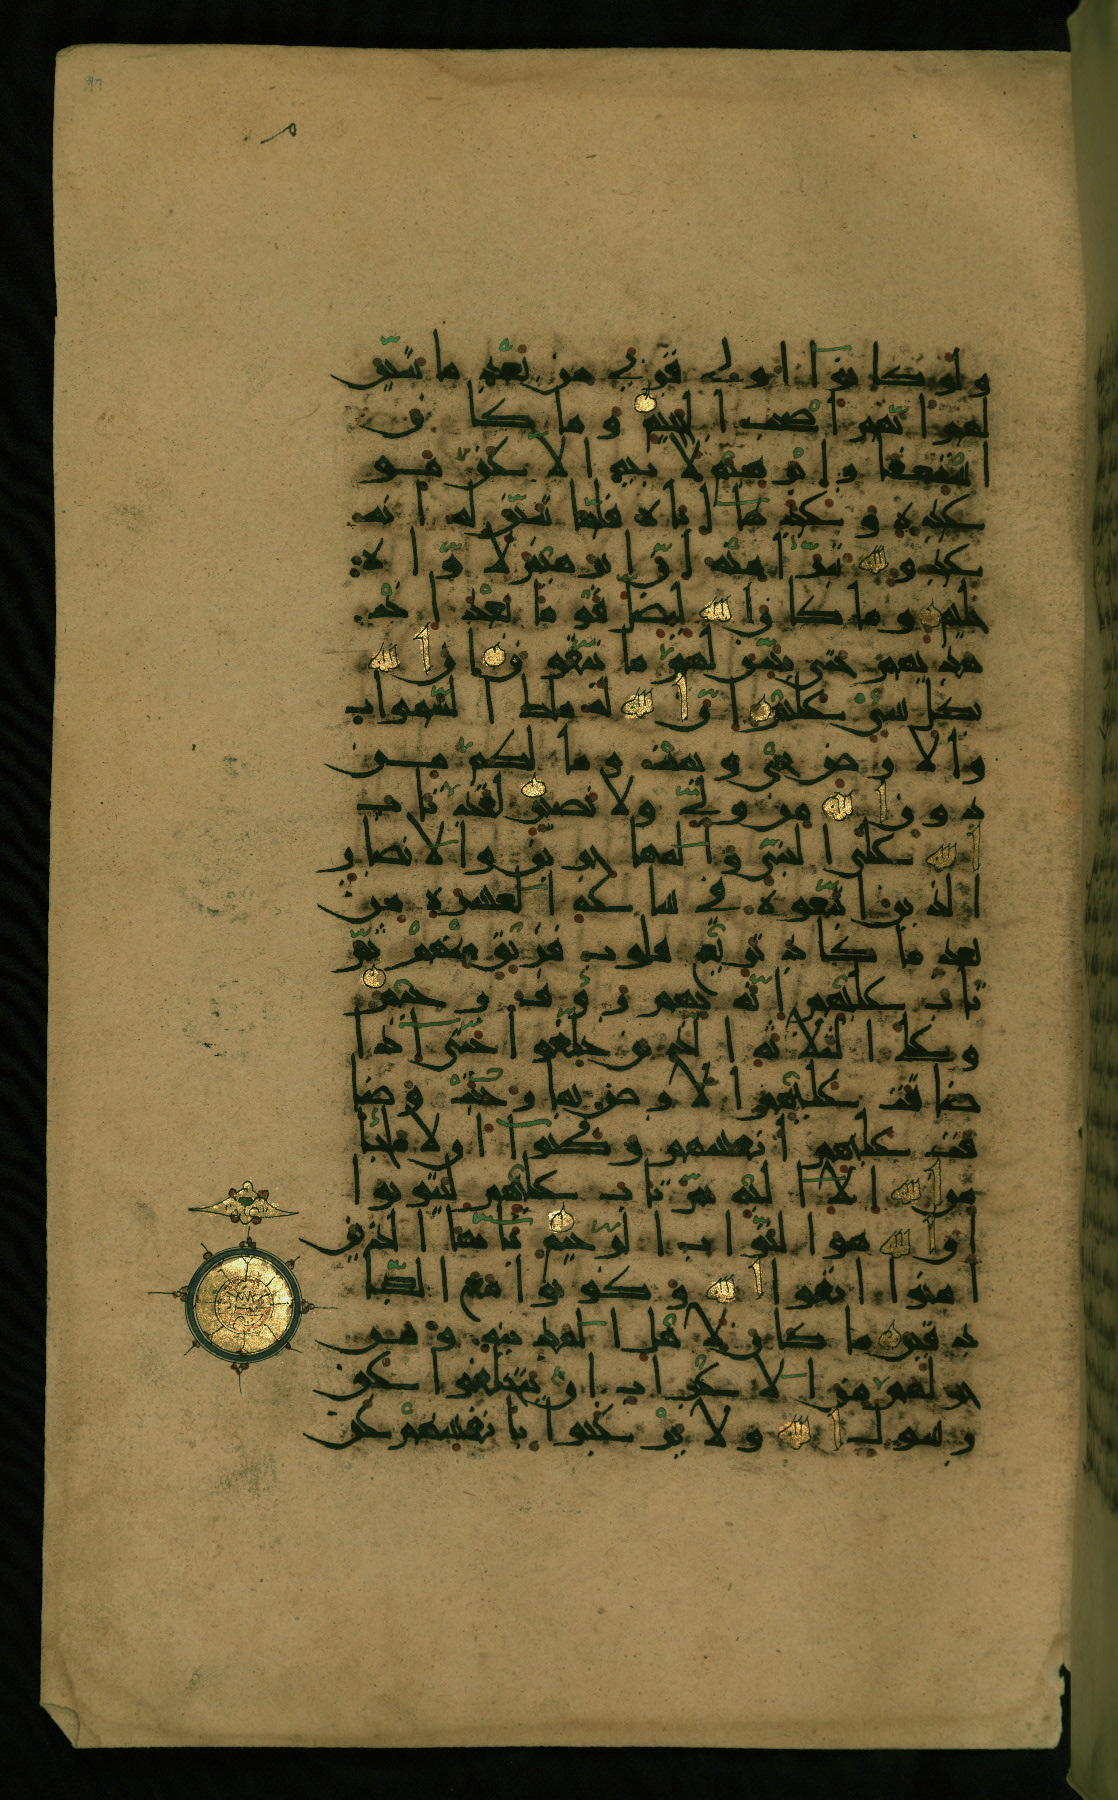 ولو كانوا اولي قربى من بعد ما تبين
لهم انهم اصحب الجحيم وما كان
استغفار ابرهيم لابيه الا عن مو
عدة وعدها اياه فلما تبين له انه
عدو لله تبرا منه ان ابرهيم لاواه
حليم وما كان الله ليضل قوما بعد اذ
هديهم حتى يبين لهم ما يتقون ان الله
بكل شي عليم ان الله له ملك السموات
والارض يحي ويميت وما لكم من
دون الله من ولي ولا نصير لقد تاب
الله على النبي والمهاجرين والانصار
الذين اتبعوه في ساعة العسرة من
بعد ما كاد تزيغ قلوب فريق منهم ثم
تاب عليهم انه بهم رؤف رحيم
وعلى الثلاثة الذين خلفوا حتى اذا
ضاقت عليهم الارض بما رحبت وضا
قت عليهم انفسهم وظنوا ان لا ملجا
من الله الا اليه ثم تاب عليهم ليتوبوا
ان الله هو التواب الرحيم يايها الذين
امنوا اتقوا الله وكونوا مع الصا
دقين ما كان لاهل المدينة ومن
حولهم من الاعراب ان يتخلفوا عن
رسول الله ولا يرغبوا بانفسهم عن